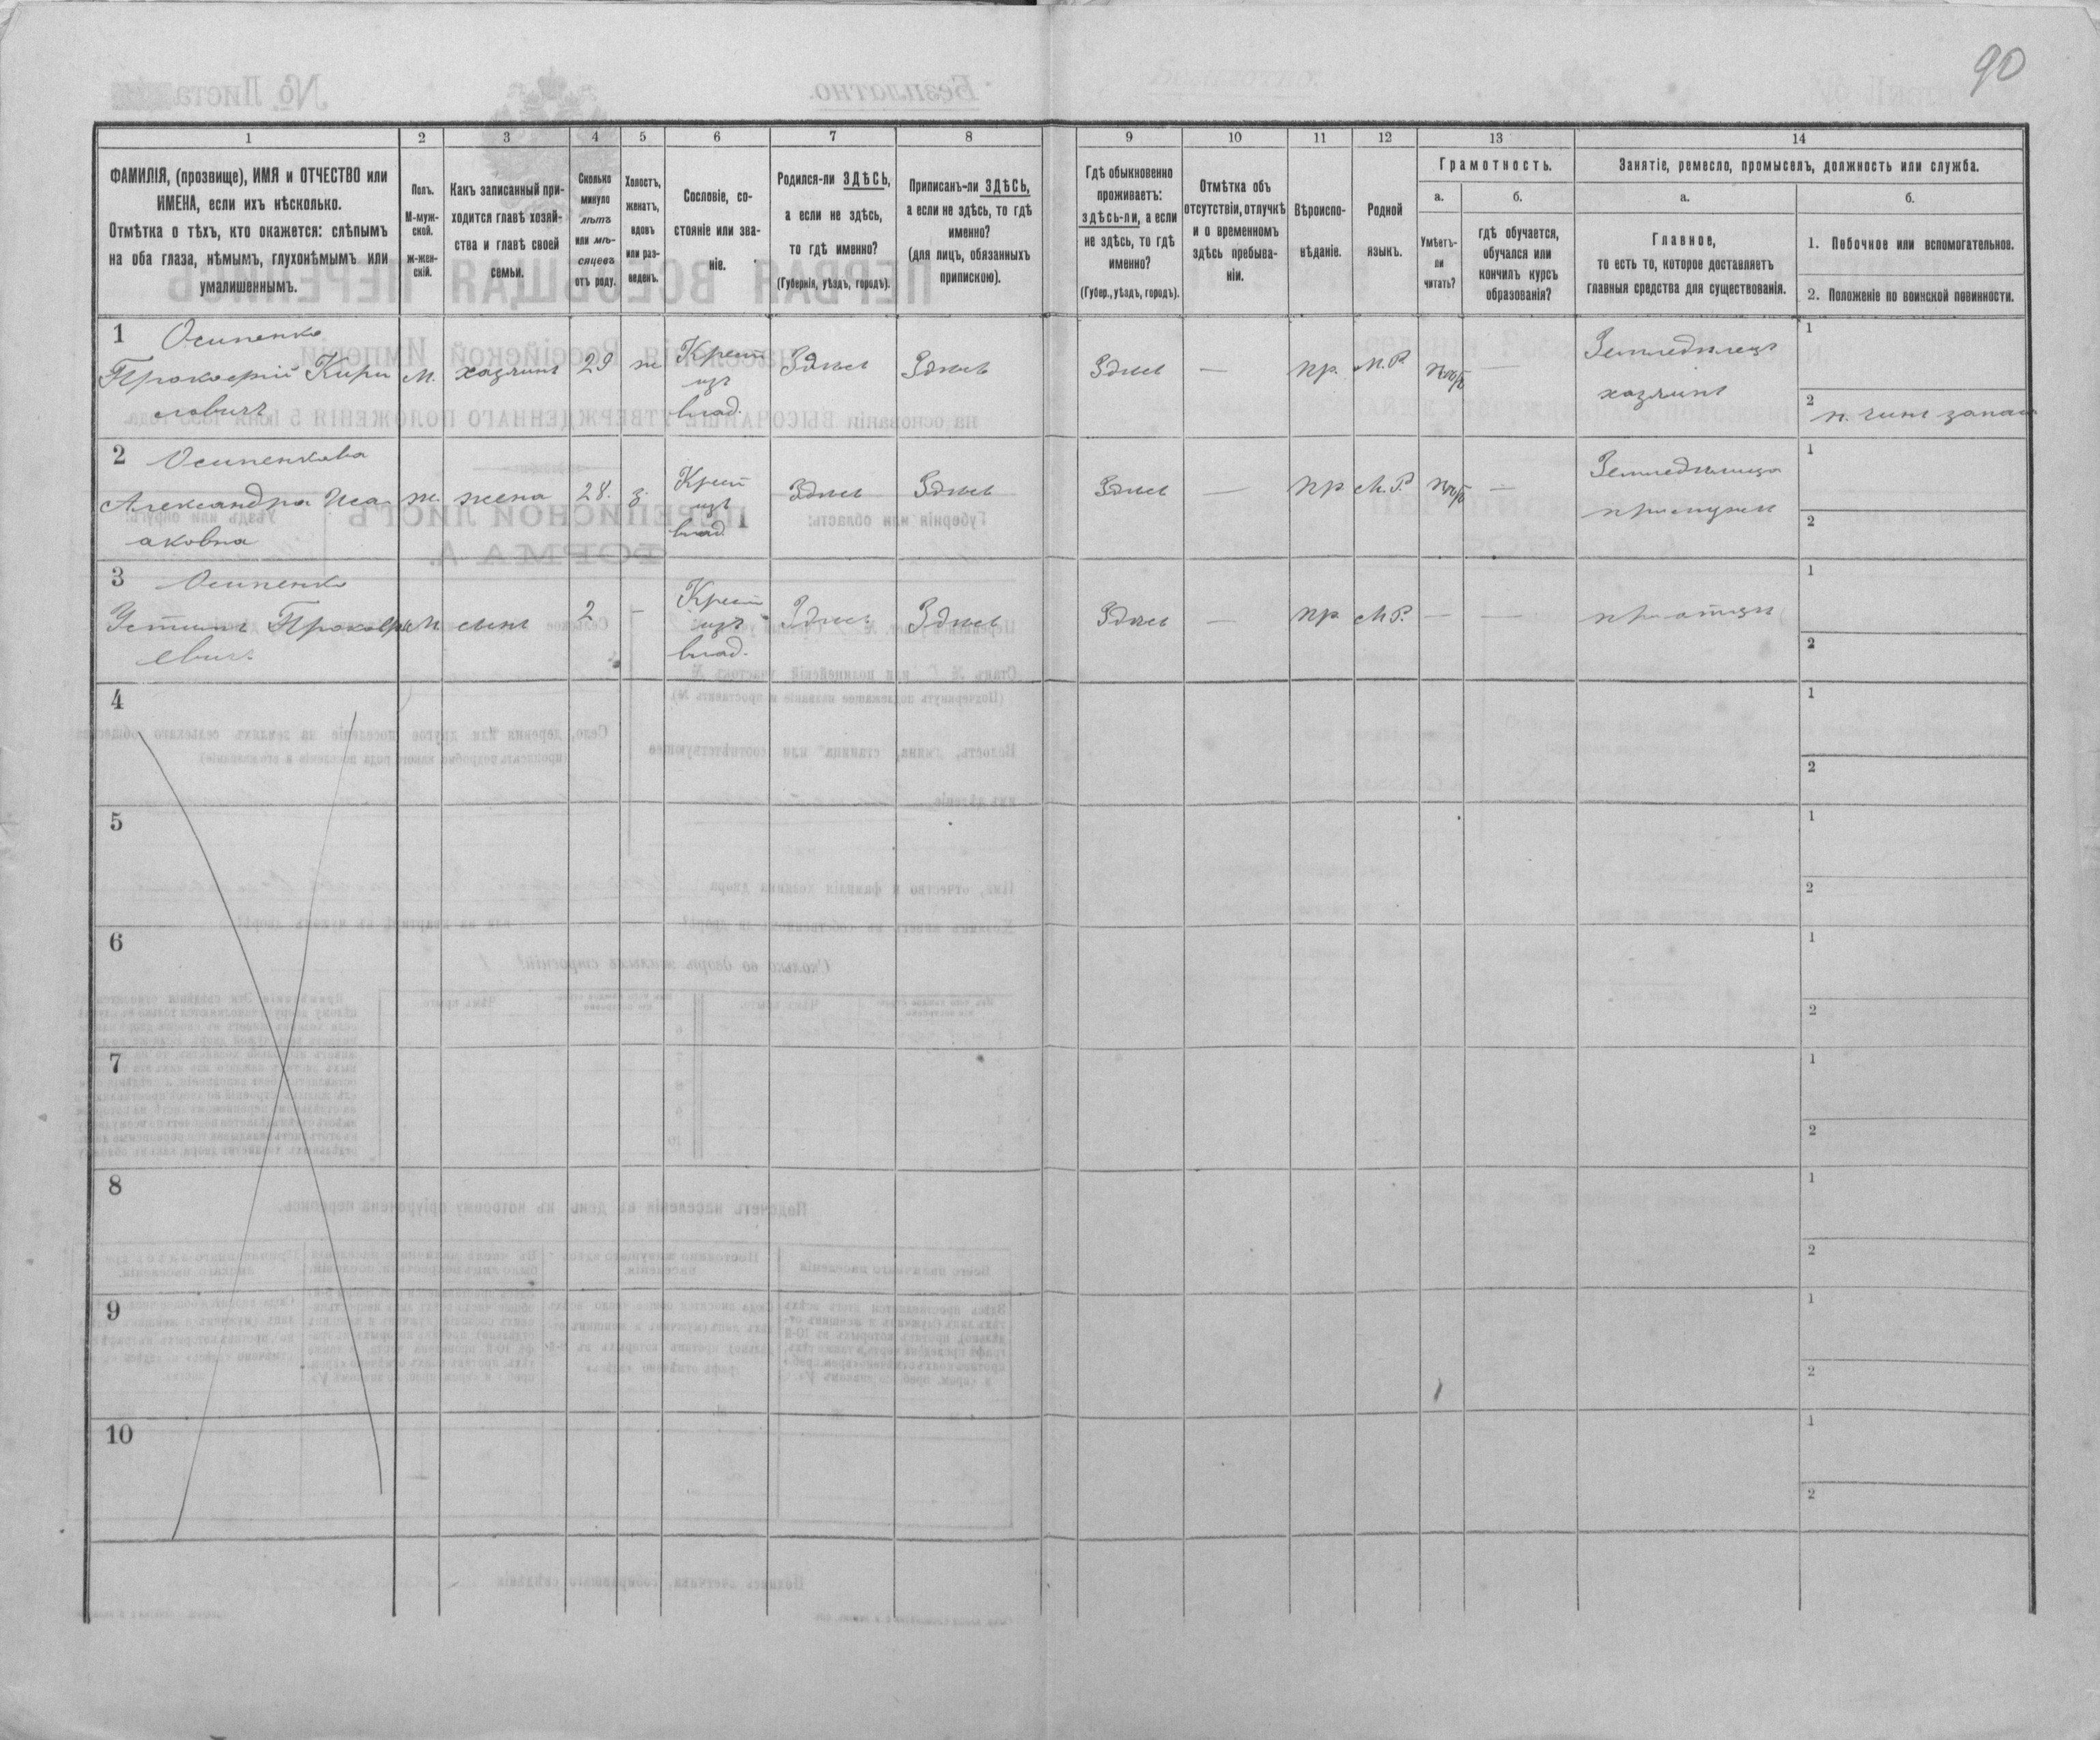 90
1
2
3
4
5
6
7
8
9
10
11
12
13
14
ФАМИЛІЯ, (прозвище), ИМЯ и ОТЧЕСТВО или
ИМЕНА, если ихъ нѣсколько.
Отмѣтка о тѣхъ, кто окажется: слѣпымъ
на оба глаза, нѣмымъ, глухонѣмымъ или
умалишеннымъ.
Полъ.
М-муж-
ской.
Ж-жен-
скій.
Какъ записанный при-
ходится главѣ хозяй-
ства и главѣ своей
семьи.
Сколько
минуло
лѣтъ
или мѣ-
сяцевъ
отъ роду.
Холостъ,
женатъ,
вдовъ
или раз-
веденъ.
Сословіе, со-
стояніе или зва-
ніе.
Родился-ли ЗДѢСЬ,
а если не здѣсь,
то гдѣ именно?
(Губернія, уѣздъ, городъ).
Приписанъ-ли ЗДѢСЬ,
а если не здѣсь, то гдѣ
именно?
(для лицъ, обязанныхъ
припискою).
Гдѣ обыкновенно
проживаетъ:
здѣсь-ли, а если
не здѣсь, то гдѣ
именно?
(Губер., уѣздъ, городъ).
Отмѣтка объ
отсутствіи, отлучкѣ
и о временномъ
здѣсь пребыва-
ніи.
Вѣроиспо-
вѣданіе.
Родной
языкъ.
Грамотность.
а.
Умѣетъ-
ли
читать?
б.
гдѣ обучается,
обучался или
кончилъ курсъ
образованія?
Занятіе, ремесло, промыселъ, должность или служба.
а.
Главное,
то есть то, которое доставляетъ
главныя средства для существованія.
б.
1. Побочное или вспомогательное.
2. Положеніе по воинской повинности.
1 Осипенко
Прокофій Кири
ловичъ
м. хозяинъ 29 ж Крест
изъ
влад.
Здѣсь Здѣсь Здѣсь — пр. М.Р. — Земледѣлецъ
хозяинъ
1
2 н. чинъ запаса
2 Осипенкова
Александра Иса
аковна
ж. жена 28. з. Крест
изъ
влад.
Здѣсь Здѣсь Здѣсь — пр М.Р. — Земледѣлица
при мужѣ
1
2
3 Осипенко
Устинъ Прокофі
евичъ
М сынъ 2 — Крест
изъ
влад.
Здѣсь Здѣсь Здѣсь — пр. М.Р. — — при отцѣ
1
2
4
1
2
5
1
2
6
1
2
7
1
2
8
1
2
9
1
2
10
1
2